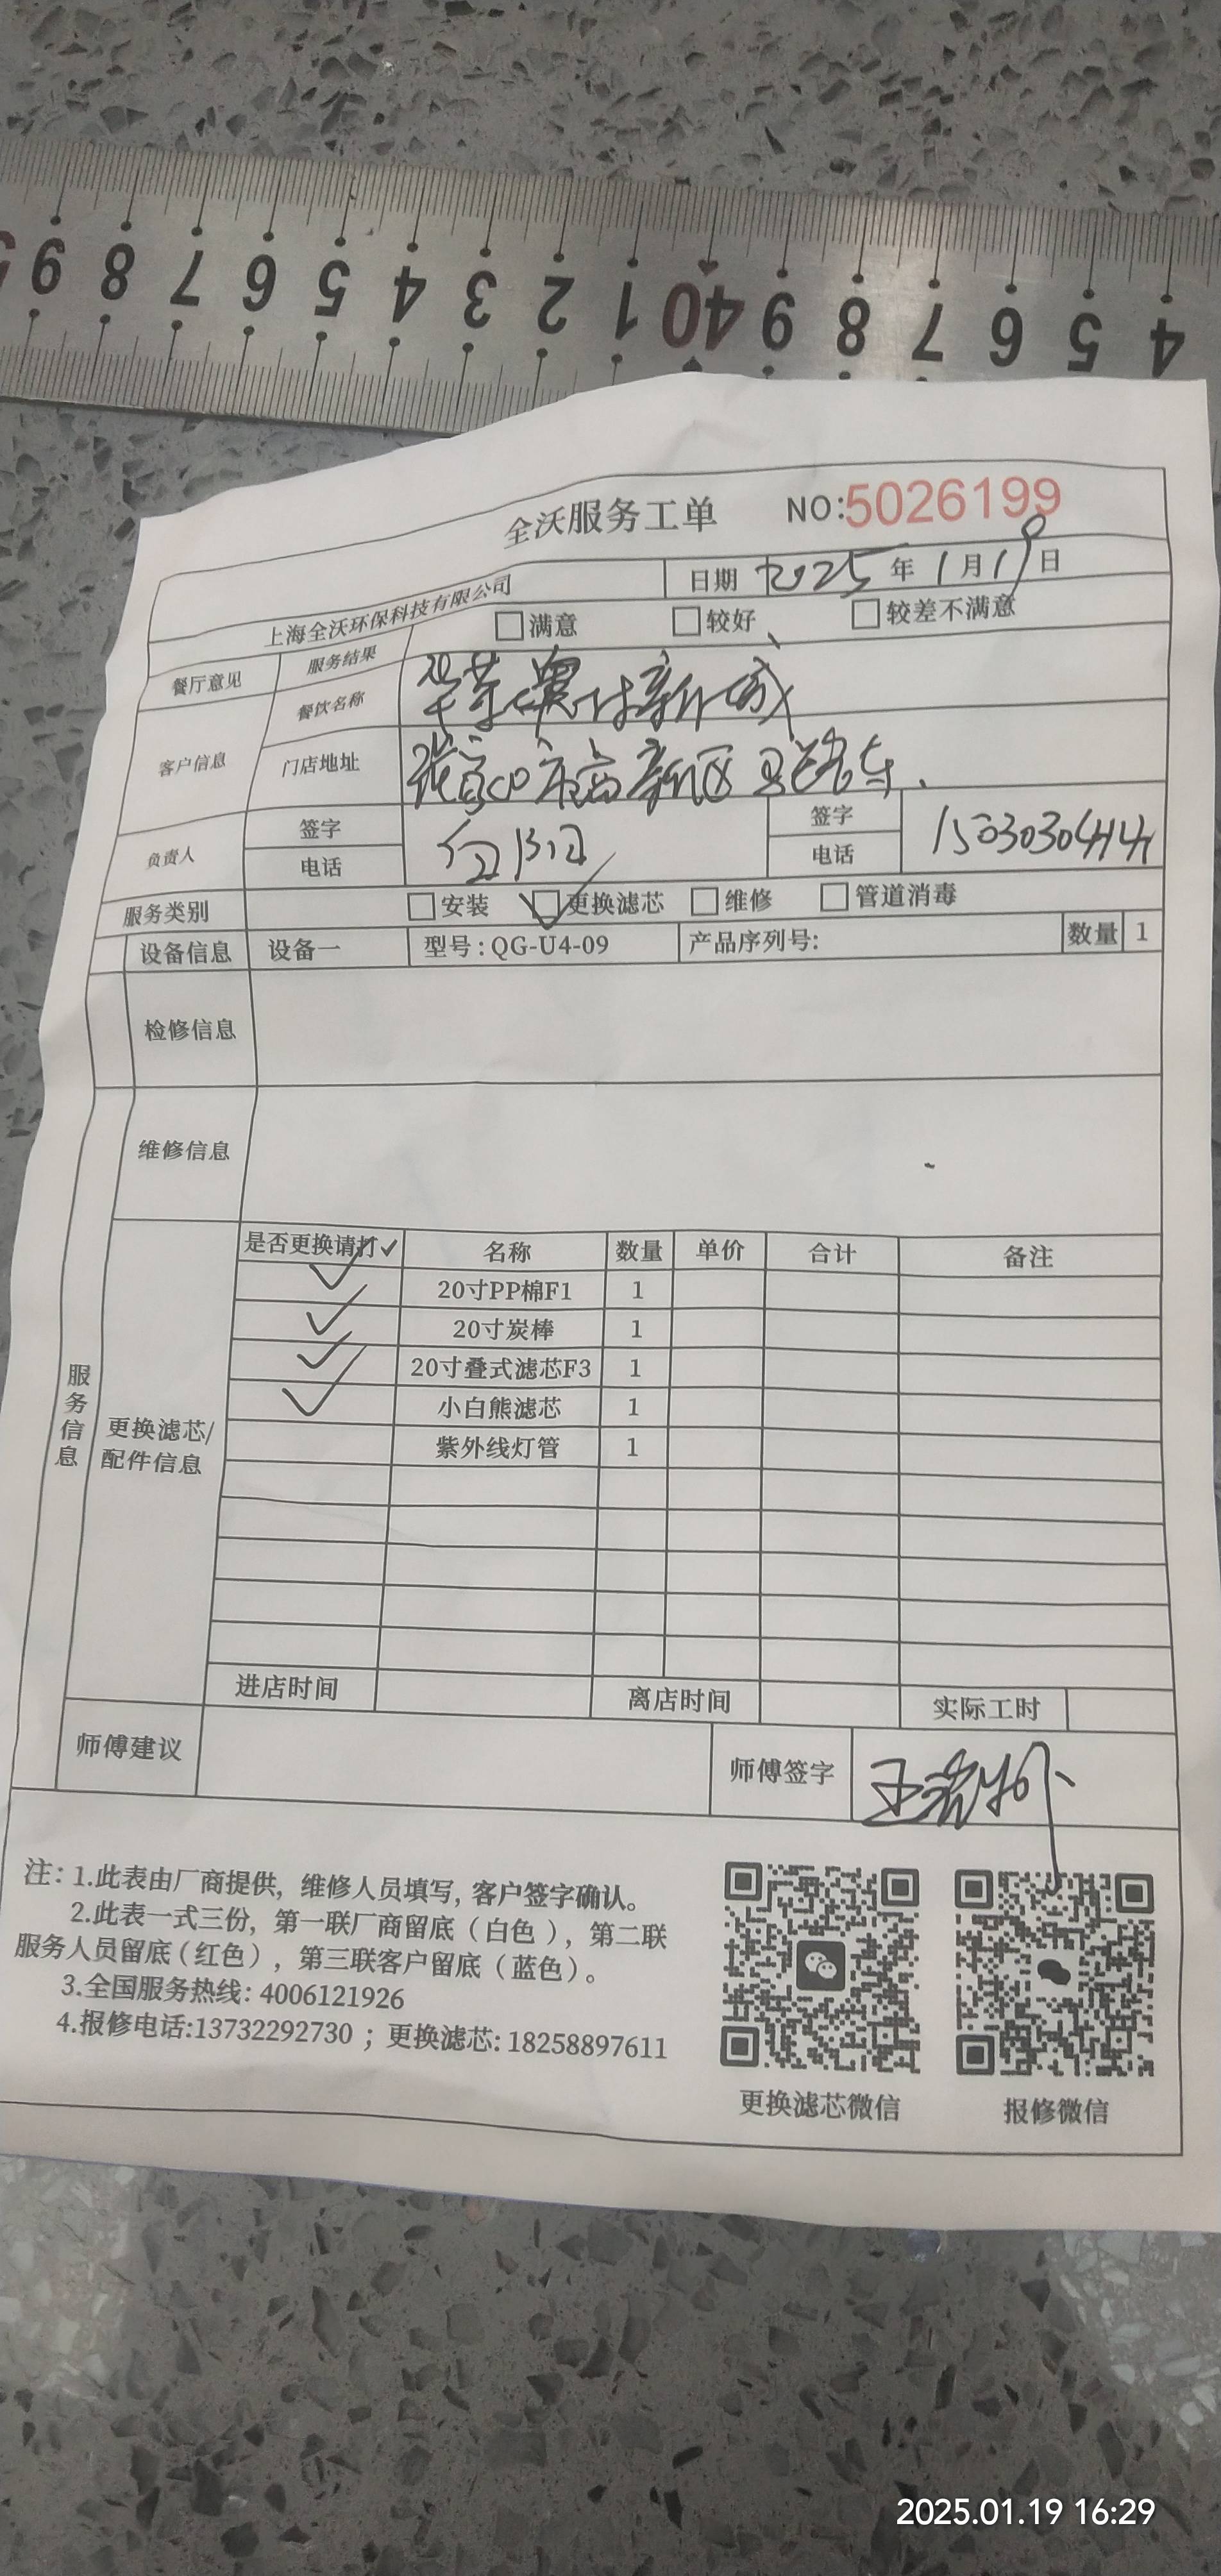 9 8 7 6 5 4 3 2 1 40 9 8 7 6 5 4
全沃服务工单 NO:5026199
上海全沃环保科技有限公司 日期 2025年1月19日
餐厅意见 服务结果 满意 较好 较差不满意
客户信息 餐饮名称
门店地址 张家口市高新区
负责人 签字 签字
电话 电话 15030304141
服务类别 安装 更换滤芯 维修 管道消毒
设备信息 设备一 型号:QG-U4-09 产品序列号: 数量 1
检修信息
维修信息
服务信息
更换滤芯/
配件信息
是否更换请打✓ 名称 数量 单价 合计 备注
✓ 20寸PP棉F1 1
✓ 20寸炭棒 1
✓ 20寸叠式滤芯F3 1
✓ 小白熊滤芯 1
紫外线灯管 1
进店时间 离店时间 实际工时
师傅建议 师傅签字
注: 1.此表由厂商提供, 维修人员填写, 客户签字确认。
2.此表一式三份, 第一联厂商留底(白色), 第二联
服务人员留底(红色), 第三联客户留底(蓝色)。
3.全国服务热线: 4006121926
4.报修电话:13732292730 ; 更换滤芯: 18258897611
更换滤芯微信 报修微信
2025.01.19 16:29